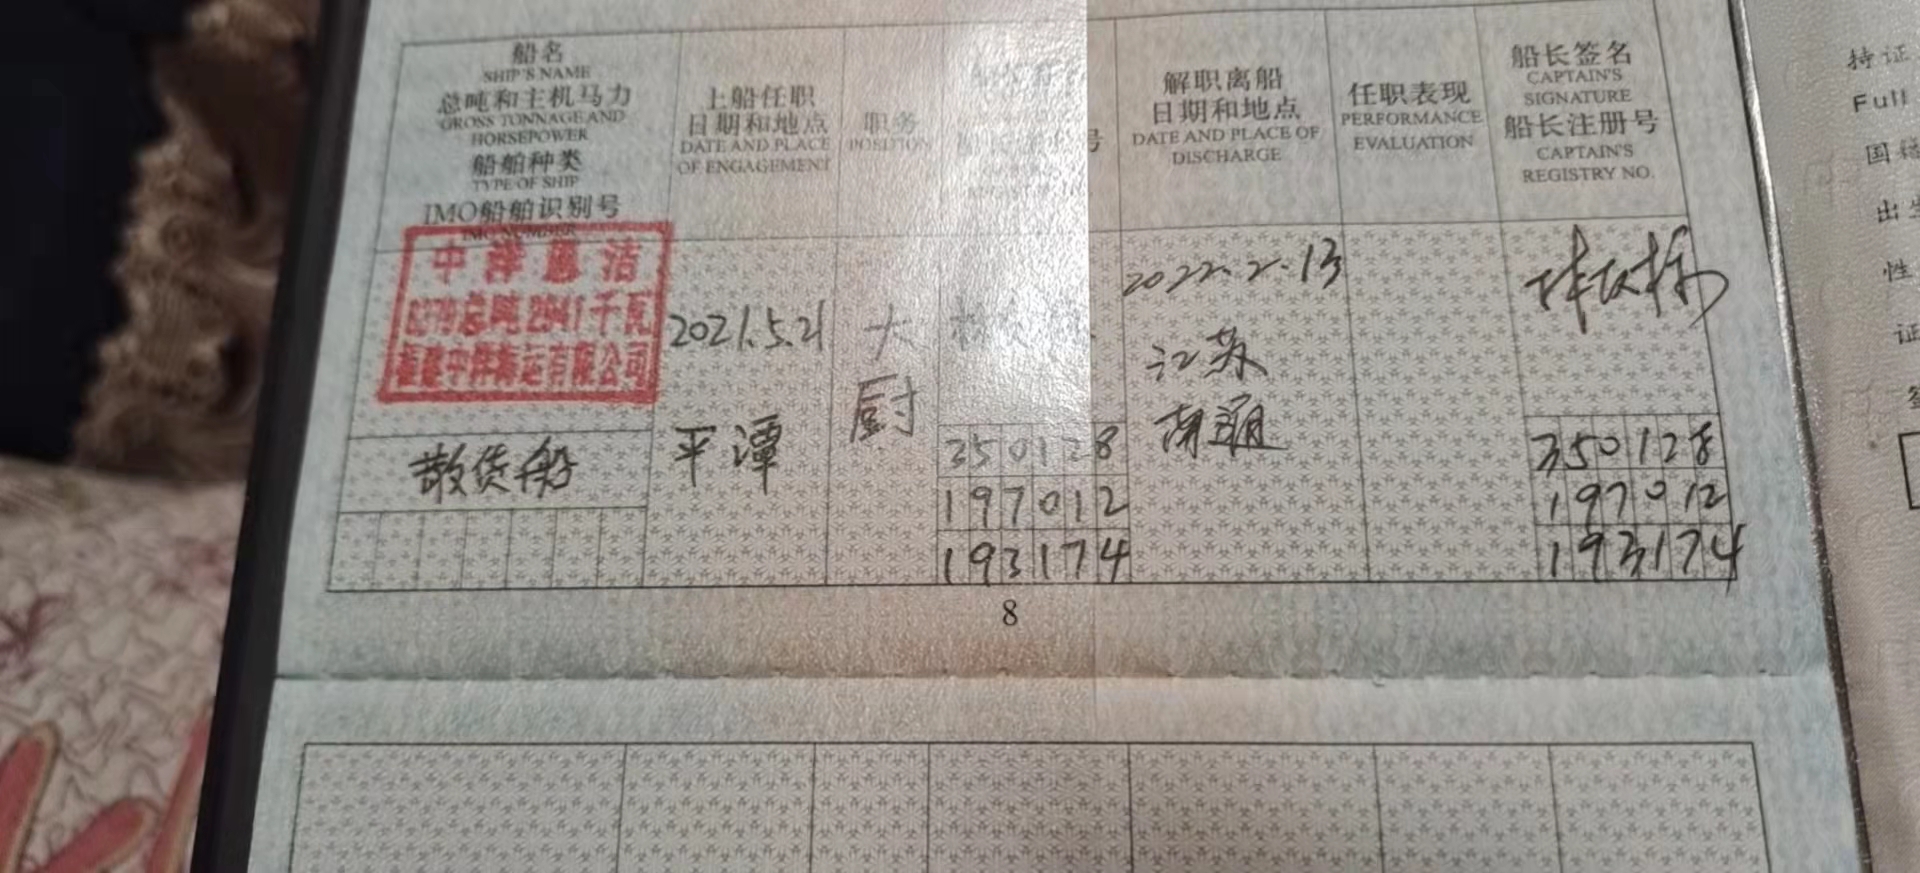 船名
SHIP'S NAME
总吨和主机马力
GROSS TONNAGE AND
HORSEPOWER
船舶种类
TYPE OF SHIP
IMO船舶识别号
IMO NUMBER
上船任职
日期和地点
DATE AND PLACE
OF ENGAGEMENT
职务
POSITION
解职离船
日期和地点
DATE AND PLACE OF
DISCHARGE
任职表现
PERFORMANCE
EVALUATION
船长签名
CAPTAIN'S
SIGNATURE
船长注册号
CAPTAIN'S
REGISTRY NO.
中洋惠洁
总吨2941千瓦
福建中洋海运有限公司
散货船
2021.5.21
平潭
大
厨
350128
197012
193174
2022.2.13
江苏
南通
350128
197012
193174
8
持证
Full
国籍
出生
性
证